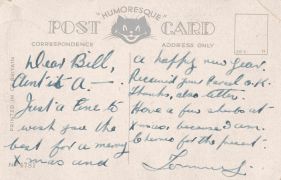 "HUMORESQUE"
POST CARD
CORRESPONDENCE
ADDRESS ONLY
PRINTED IN GT. BRITAIN
Dear Bill,
Aunt & A. —
Just a line to
wish you the
best for a merry
Xmas and
a happy new year.
Received your Parcel O.K.
Thanks, also letter.
Have a few shots at
Xmas because I am
for the present.